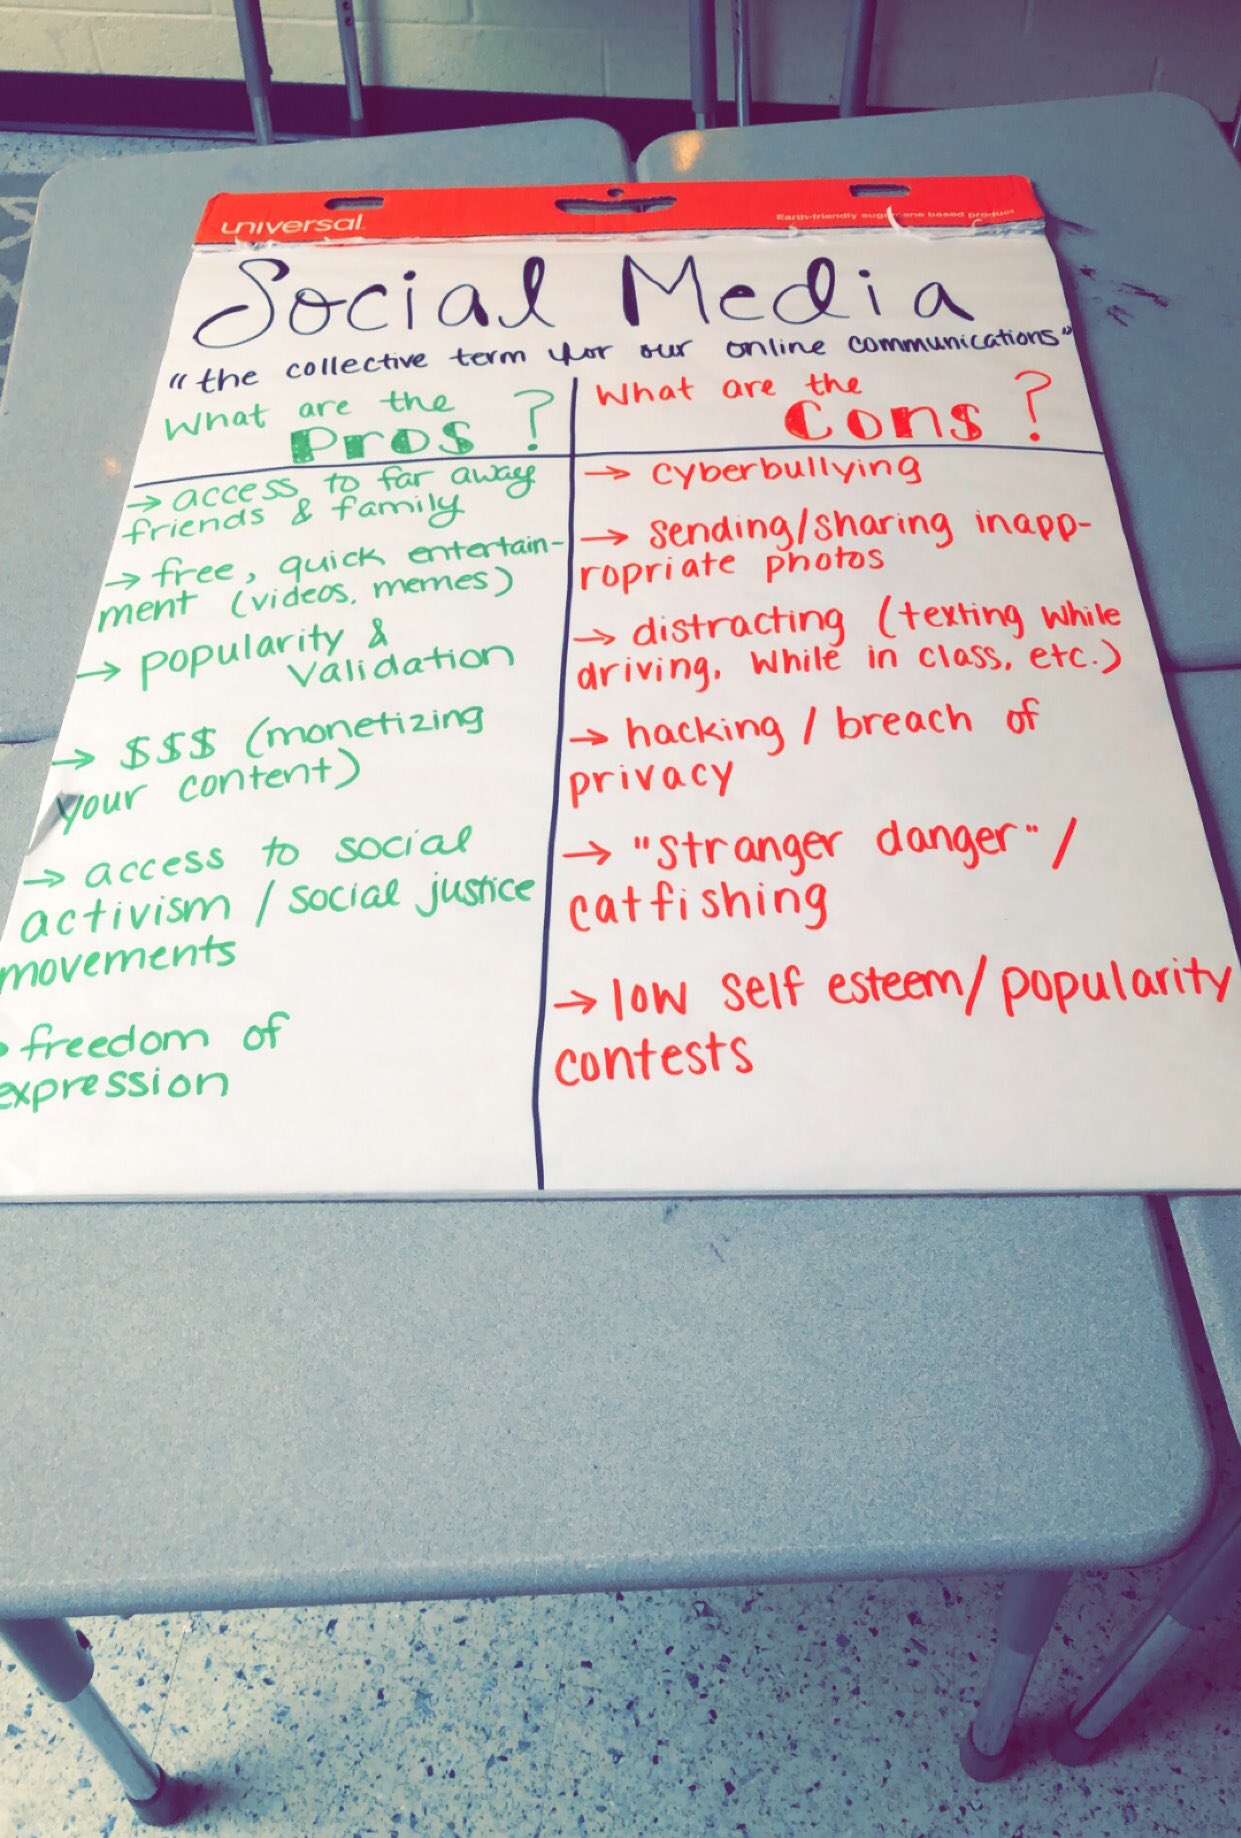 universal.
Earth-friendly sugarcane based product
Social Media
"the collective term for our online communications"
What are the
Pros ?
→ access to far away
friends & family
→ free, quick entertain-
ment (videos, memes)
→ popularity &
validation
→ $$$ (monetizing
your content)
→ access to social
activism / social justice
movements
→ freedom of
expression
What are the
Cons ?
→ cyberbullying
→ sending/sharing inapp-
ropriate photos
→ distracting (texting while
driving, while in class, etc.)
→ hacking / breach of
privacy
→ "stranger danger" /
catfishing
→ low self esteem/popularity
contests